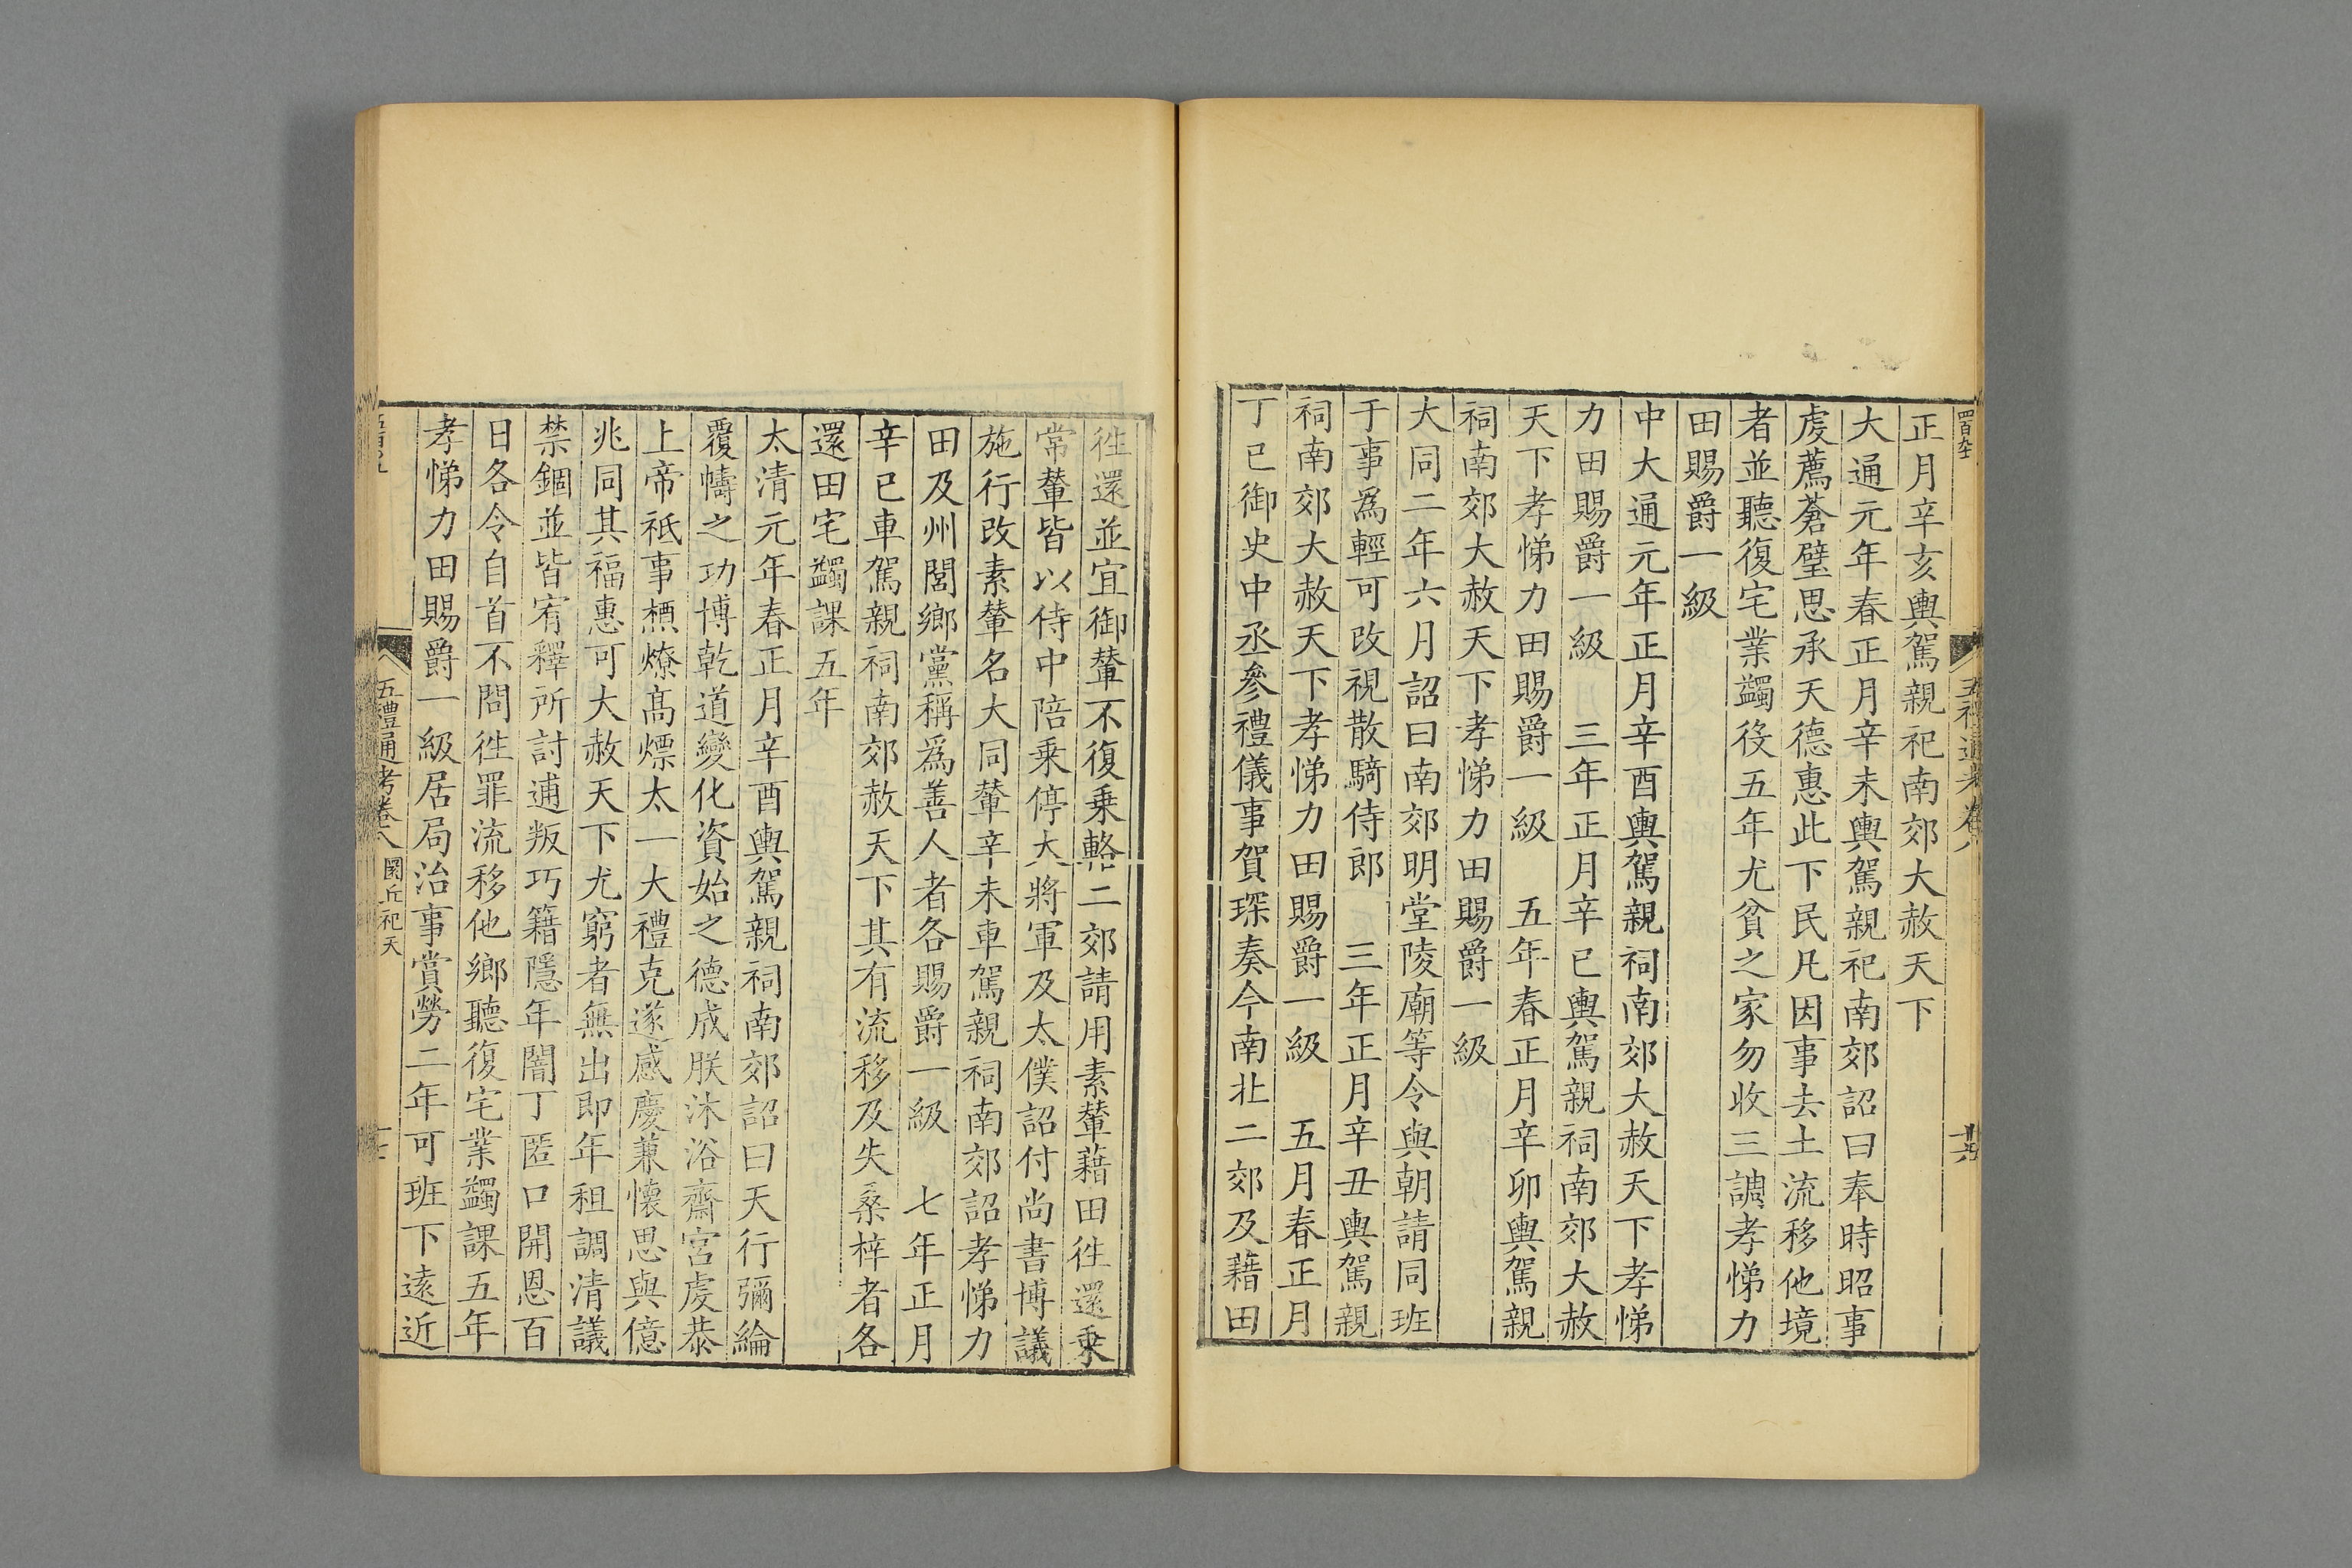 正月辛亥輿駕親祀南郊大赦天下
大通元年春正月辛未輿駕親祀南郊詔曰奉時昭事
虔薦蒼璧思承天德惠此下民凡因事去土流移他境
者並聽復宅業蠲役五年尤貧之家勿收三調孝悌力
田賜爵一級
中大通元年正月辛酉輿駕親祠南郊大赦天下孝悌
力田賜爵一級 三年正月辛巳輿駕親祠南郊大赦
天下孝悌力田賜爵一級 五年春正月辛卯輿駕親
祠南郊大赦天下孝悌力田賜爵一級
大同二年六月詔曰南郊明堂陵廟等令與朝請同班
于事爲輕可改視散騎侍郎 三年正月辛丑輿駕親
祠南郊大赦天下孝悌力田賜爵一級 五月春正月
丁巳御史中丞參禮儀事賀琛奏今南北二郊及藉田
徃還並宜御輦不復乗輅二郊請用素輦藉田徃還乗
常輦皆以侍中陪乗停大將軍及太僕詔付尚書博議
施行改素輦名大同輦辛未車駕親祠南郊詔孝悌力
田及州閭鄉黨稱爲善人者各賜爵一級 七年正月
辛巳車駕親祠南郊赦天下其有流移及失桑梓者各
還田宅蠲課五年
太清元年春正月辛酉輿駕親祠南郊詔曰天行彌綸
覆幬之功博乾道變化資始之德成朕沐浴齋宮虔恭
上帝祗事槱燎髙熛太一大禮克遂感慶兼懷思與億
兆同其福惠可大赦天下尤窮者無出即年租調清議
禁錮並皆宥釋所討逋叛巧籍隱年闇丁匿口開恩百
日各令自首不問徃罪流移他鄉聽復宅業蠲課五年
孝悌力田賜爵一級居局治事賞勞二年可班下逺近
五禮通考卷八 圜丘祀天